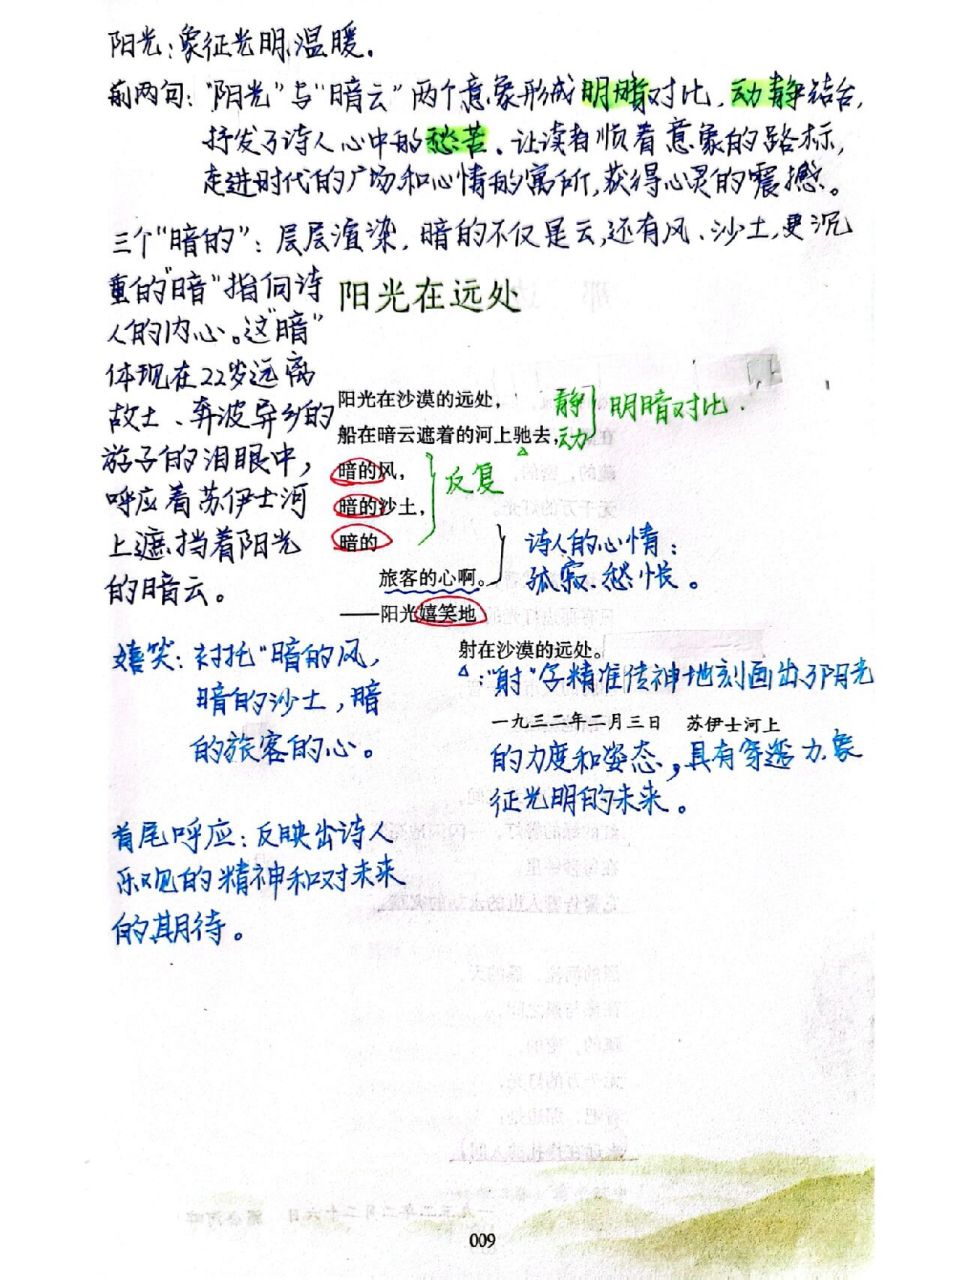 阳光:象征光明、温暖.
前两句:"阳光"与"暗云"两个意象形成明暗对比,动静结合,
抒发了诗人心中的愁苦、让读者顺着意象的路标,
走进时代的广场和心情的寓所,获得心灵的震撼。
三个"暗的":层层渲染,暗的不仅是云,还有风、沙土,更沉
重的"暗"指向诗
人的内心。这"暗"
体现在22岁远离
故土、奔波异乡的
游子的泪眼中,
呼应着苏伊士河
上遮挡着阳光
的暗云。
阳光在远处
阳光在沙漠的远处,
静
明暗对比.
船在暗云遮着的河上驰去,
动
暗的风,
反复
暗的沙土,
暗的
诗人的心情:
旅客的心啊。
孤寂、愁恨。
——阳光嬉笑地
射在沙漠的远处。
嬉笑:衬托"暗的风,
暗的沙土,暗
的旅客的心。
△:"射"字精准传神地刻画出了阳光
一九三二年二月三日 苏伊士河上
的力度和姿态,具有穿透力,象
征光明的未来。
首尾呼应:反映出诗人
乐观的精神和对未来
的期待。
009